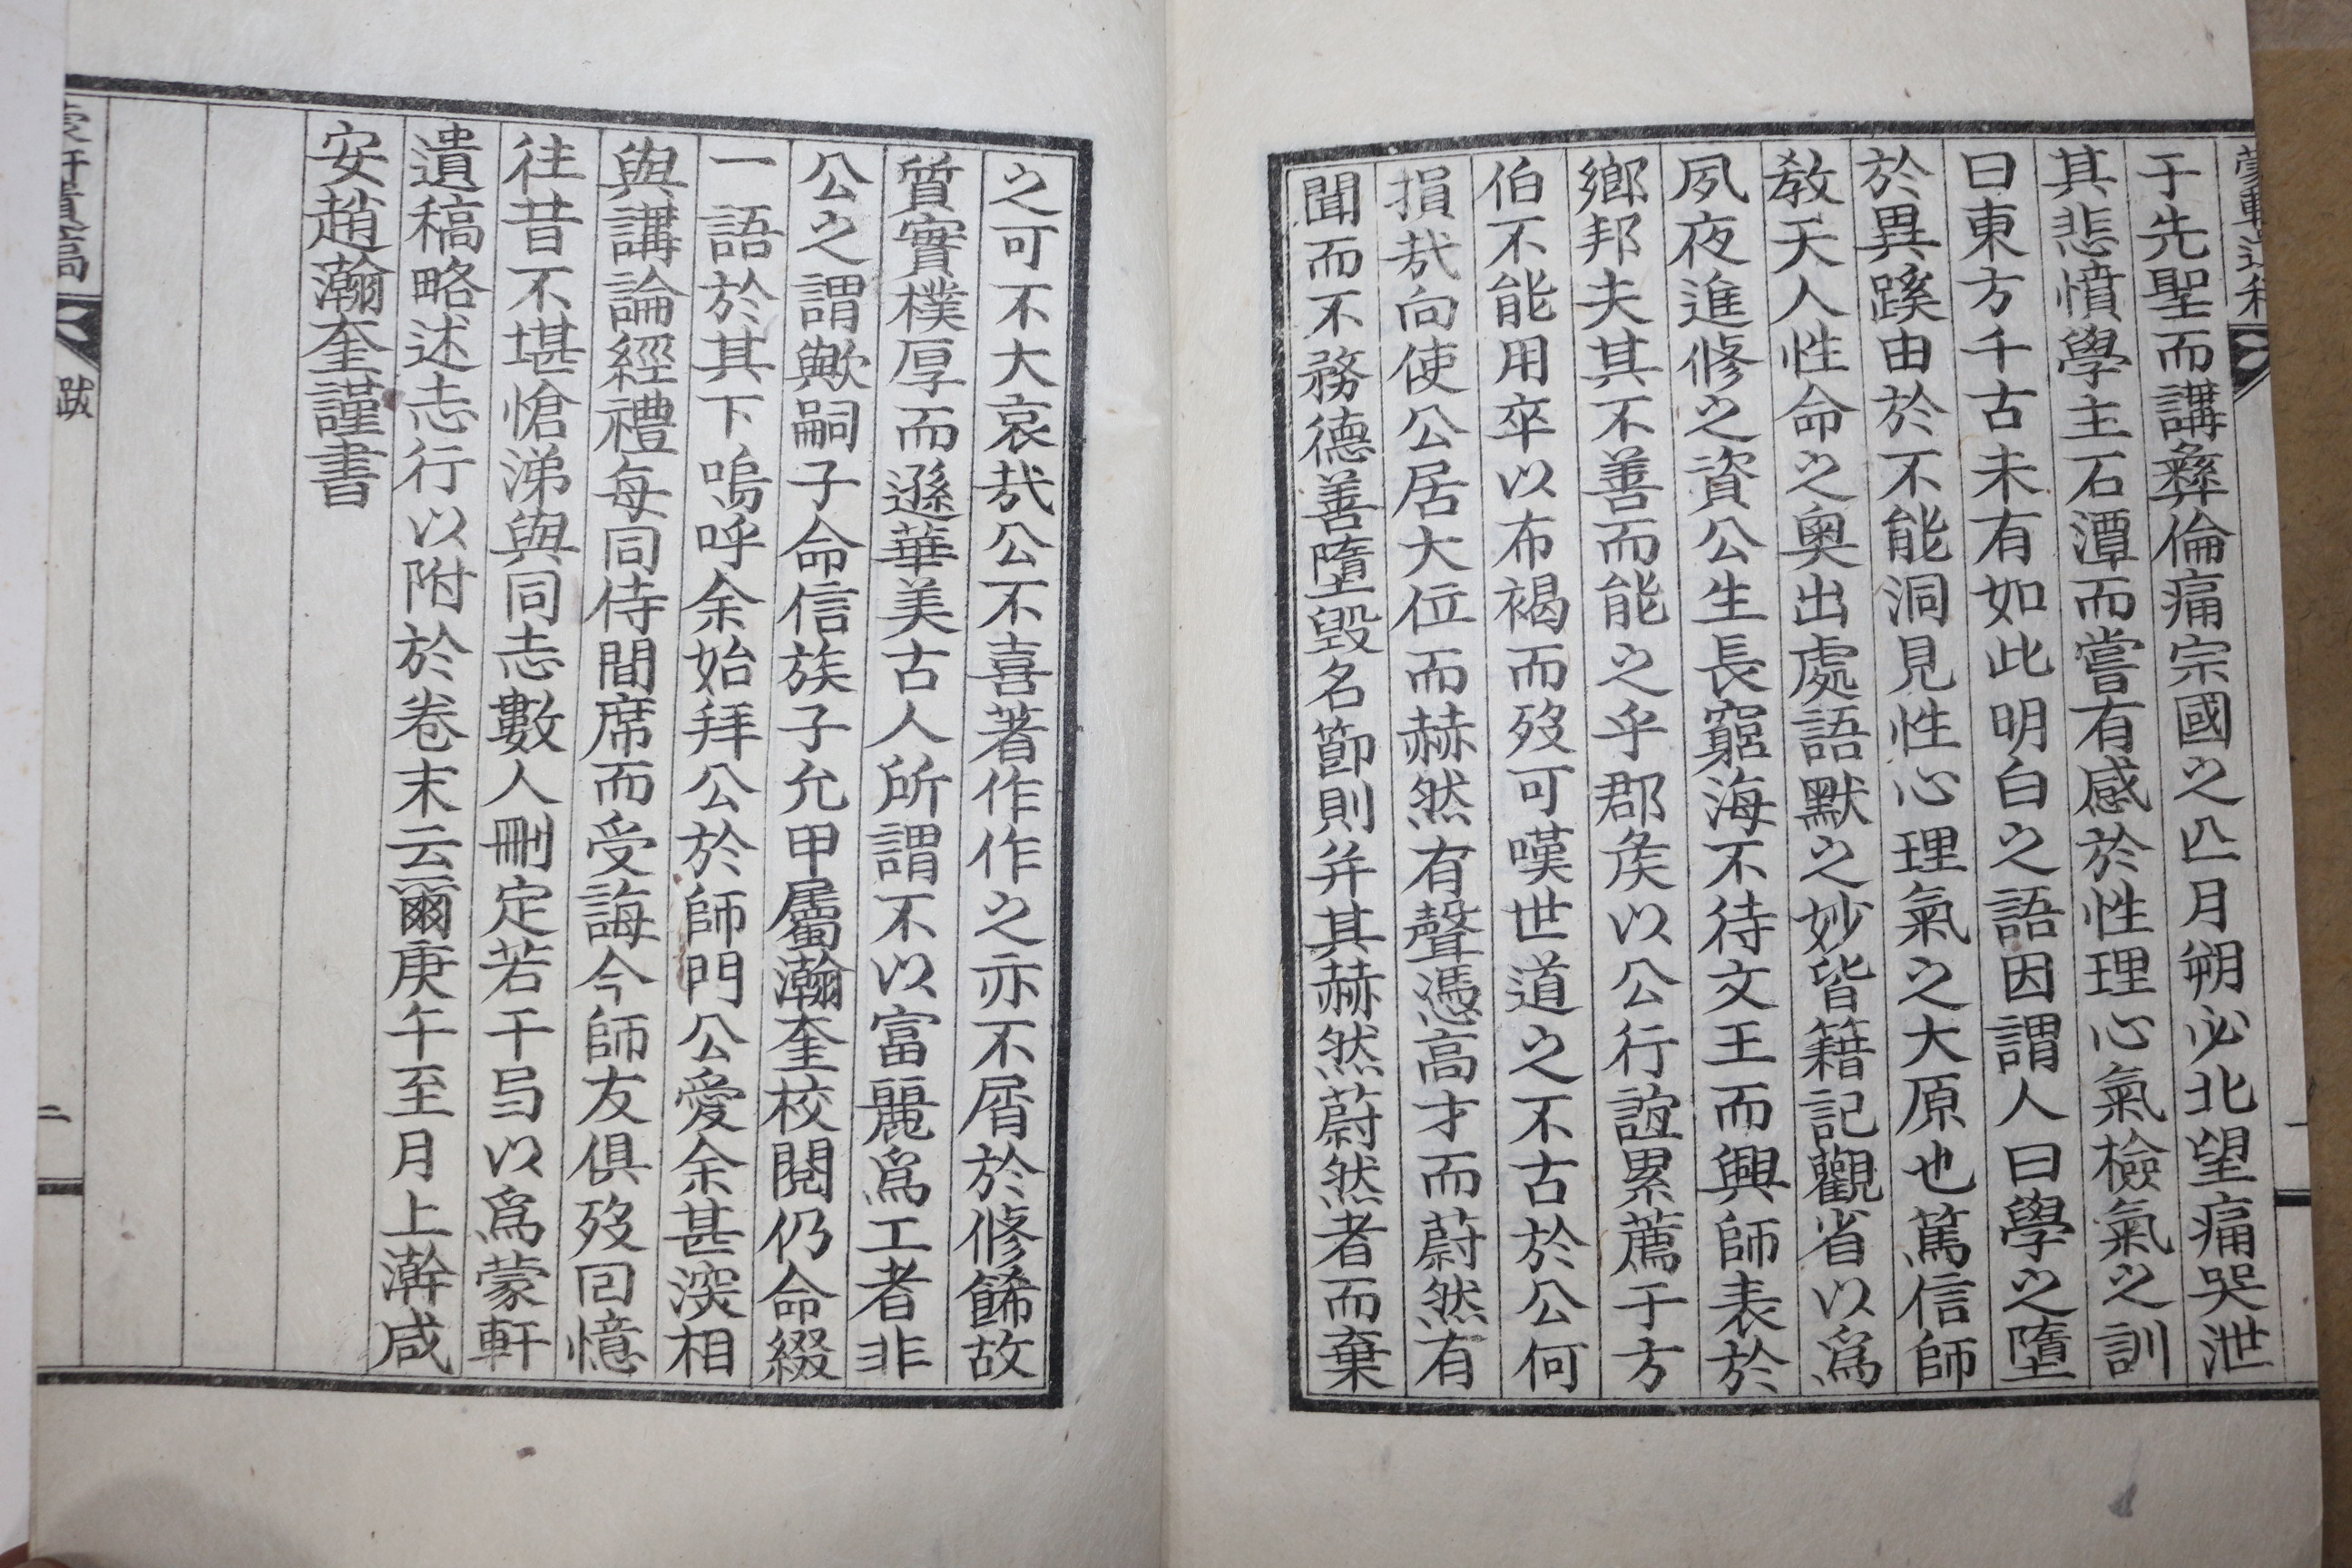 于先聖而講彝倫痛宗國之亾月朔必北望痛哭泄
其悲憤學主石潭而嘗有感於性理心氣檢氣之訓
曰東方千古未有如此明白之語因謂人曰學之墮
於異蹊由於不能洞見性心理氣之大原也篤信師
敎天人性命之奧出處語默之妙皆籍記觀省以爲
夙夜進修之資公生長窮海不待文王而興師表於
鄉邦夫其不善而能之乎郡矦以公行誼累薦于方
伯不能用卒以布褐而歿可嘆世道之不古於公何
損㢤向使公居大位而赫然有聲憑高才而蔚然有
聞而不務德善墮毀名節則并其赫然蔚然者而棄
之可不大哀㢤公不喜著作作之亦不屑於修餙故
質實樸厚而遜華美古人所謂不以富麗爲工者非
公之謂歟嗣子命信族子允甲屬瀚奎校閱仍命綴
一語於其下嗚呼余始拜公於師門公愛余甚深相
與講論經禮每同侍間席而受誨今師友俱歿回憶
往昔不堪愴涕與同志數人刪定若干㢧以爲蒙軒
遺稿略述志行以附於卷末云爾庚午至月上澣咸
安趙瀚奎謹書
跋
二